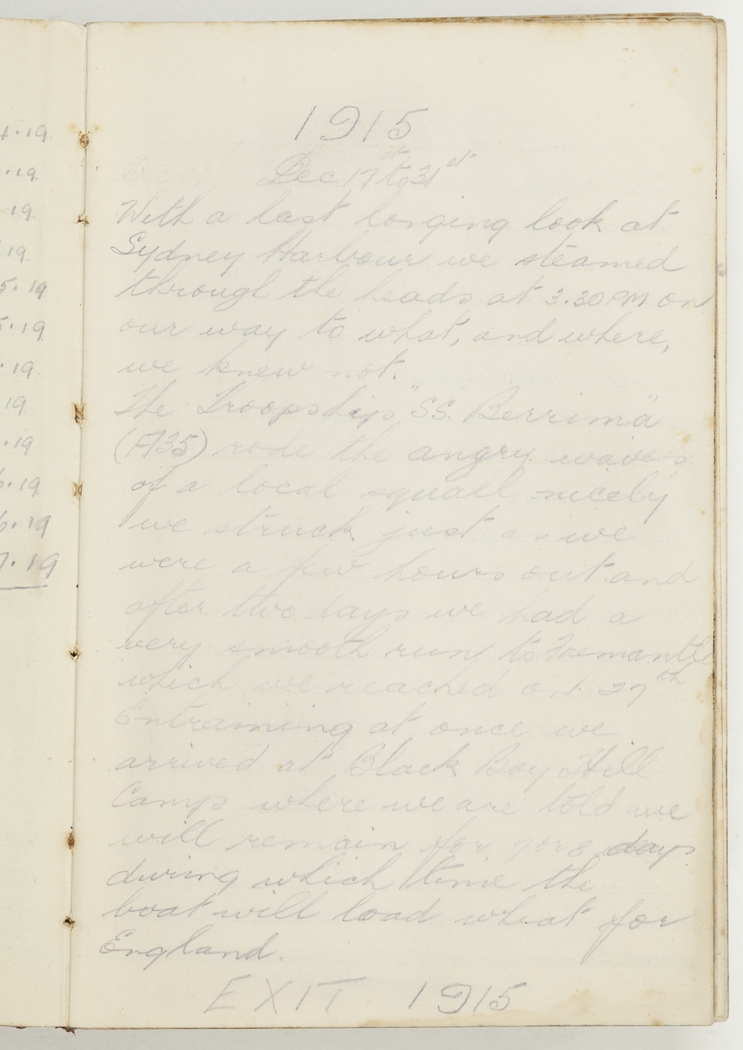 4.19
.19
.19
.19
5.19
5.19
.19
19
.19
6.19
6.19
7.19
1915
Dec 17th to 31st
With a last longing look at
Sydney Harbour we steamed
through the heads at 3.30 PM on
our way to what, and where,
we knew not.
The Troopship "SS. Berrima"
(A35) rode the angry waves
of a local squall nicely
we struck just as we
were a few hours out and
after two days we had a
very smooth run to Fremantle
which we reached on 27th
Entraining at once we
arrived at Black Boy Hill
Camp where we are told we
will remain for 7 or 8 days
during which time the
boat will load wheat for
England.
EXIT 1915